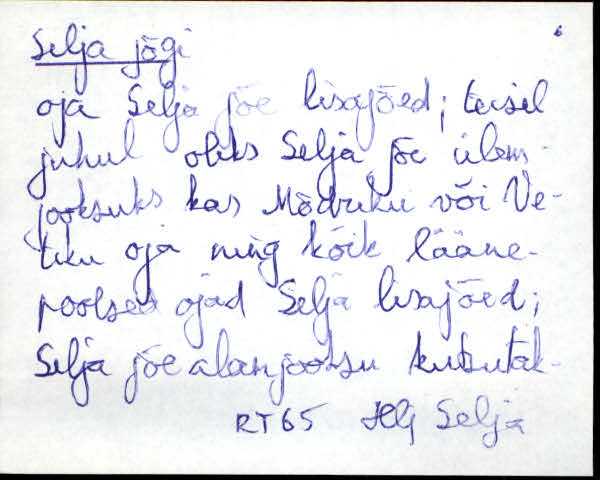 6
Selja jõgi
oja Selja jõe lisajõed; teisel
juhul oleks Selja jõe ülem-
jooksuks kas Mõdriku või Ve-
tiku oja ning kõik lääne-
poolsed ojad Selja lisajõed;
Selja jõe alamjooksu kutsutak-
RT65 Hlj Selja